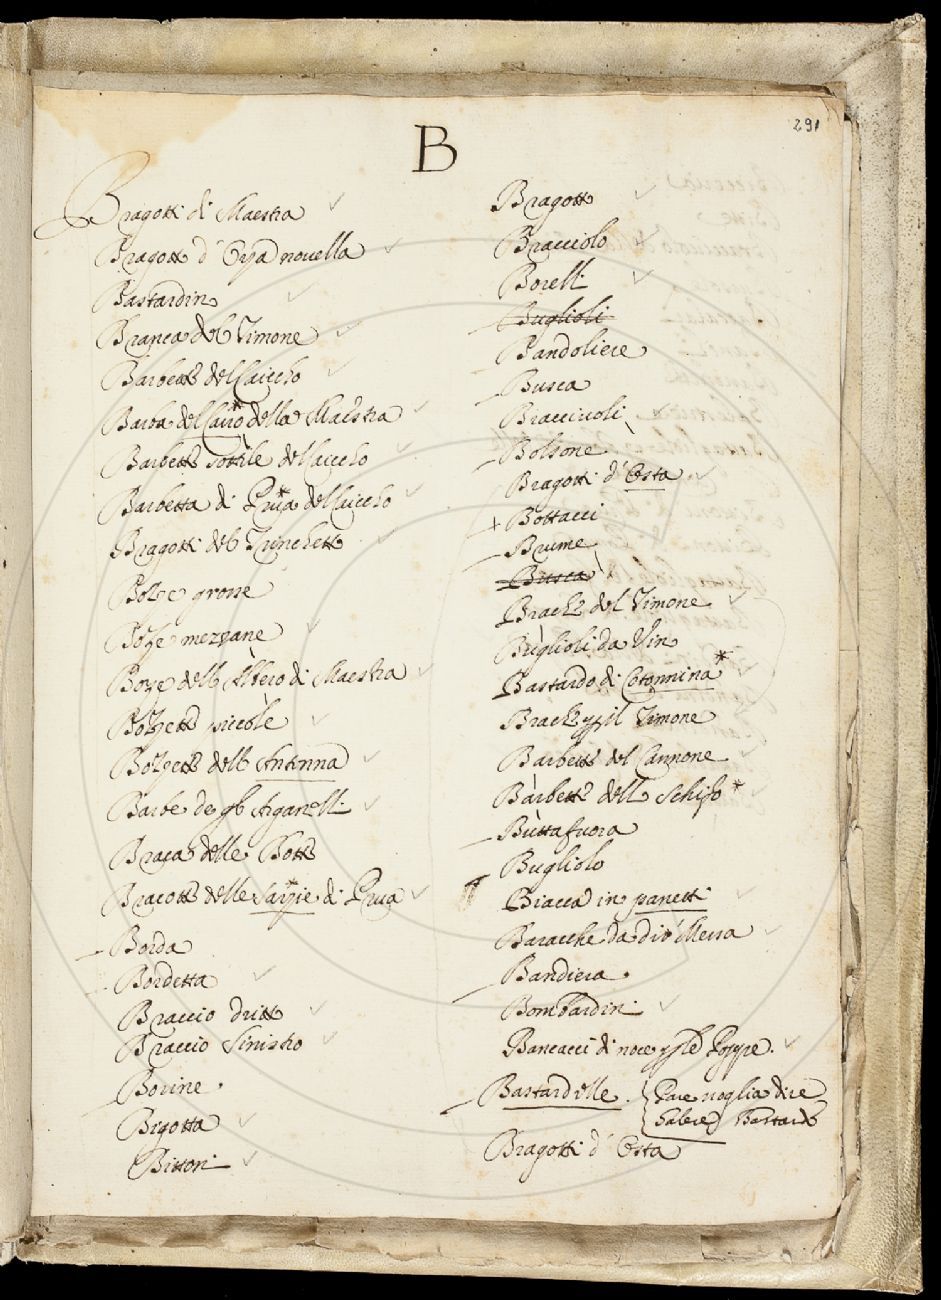 291
B
Bragotti di Maestra
Bragotto d'Orza nouella
Bastardino
Branca del Timone
Barbetta del Caiccho
Barba del della Maestra
Barbetta sottile del Caiccho
Barbetta di Prua del Caiccho
Bragotti del Trinchetto
Boze grosse
Boze mezzane
Boze dell'Albero di Maestra
Bozzetto piccole
Bozzetto dell'Antenna
Barbe de gli Arganelli
Braga delle Botte
Bracotto delle Sarzie di Prua
Borda
Bordetta
Braccio dritto
Braccio Sinistro
Bovine
Bigotta
Bittori
Bragotto
Bracciolo
Borelli
Buglioli
Bandoliere
Busca
Bracciuoli
Bolsone
Bragotti d'Osta
Bottacci
Brume
Busca
del Timone
Buglioli da Vin
Bastardo di Cotonnina *
Timone
Barbetta del Cannone
Barbetta dell Schifo *
Buttafuora
Bugliolo
Biacca in panetti
Baracche da dir Messa
Bandiera
Bombardini
Bancacci di noce Poppe.
Bastardelle. { Pare voglia dire
Bastardo
Bragotti d'Osta